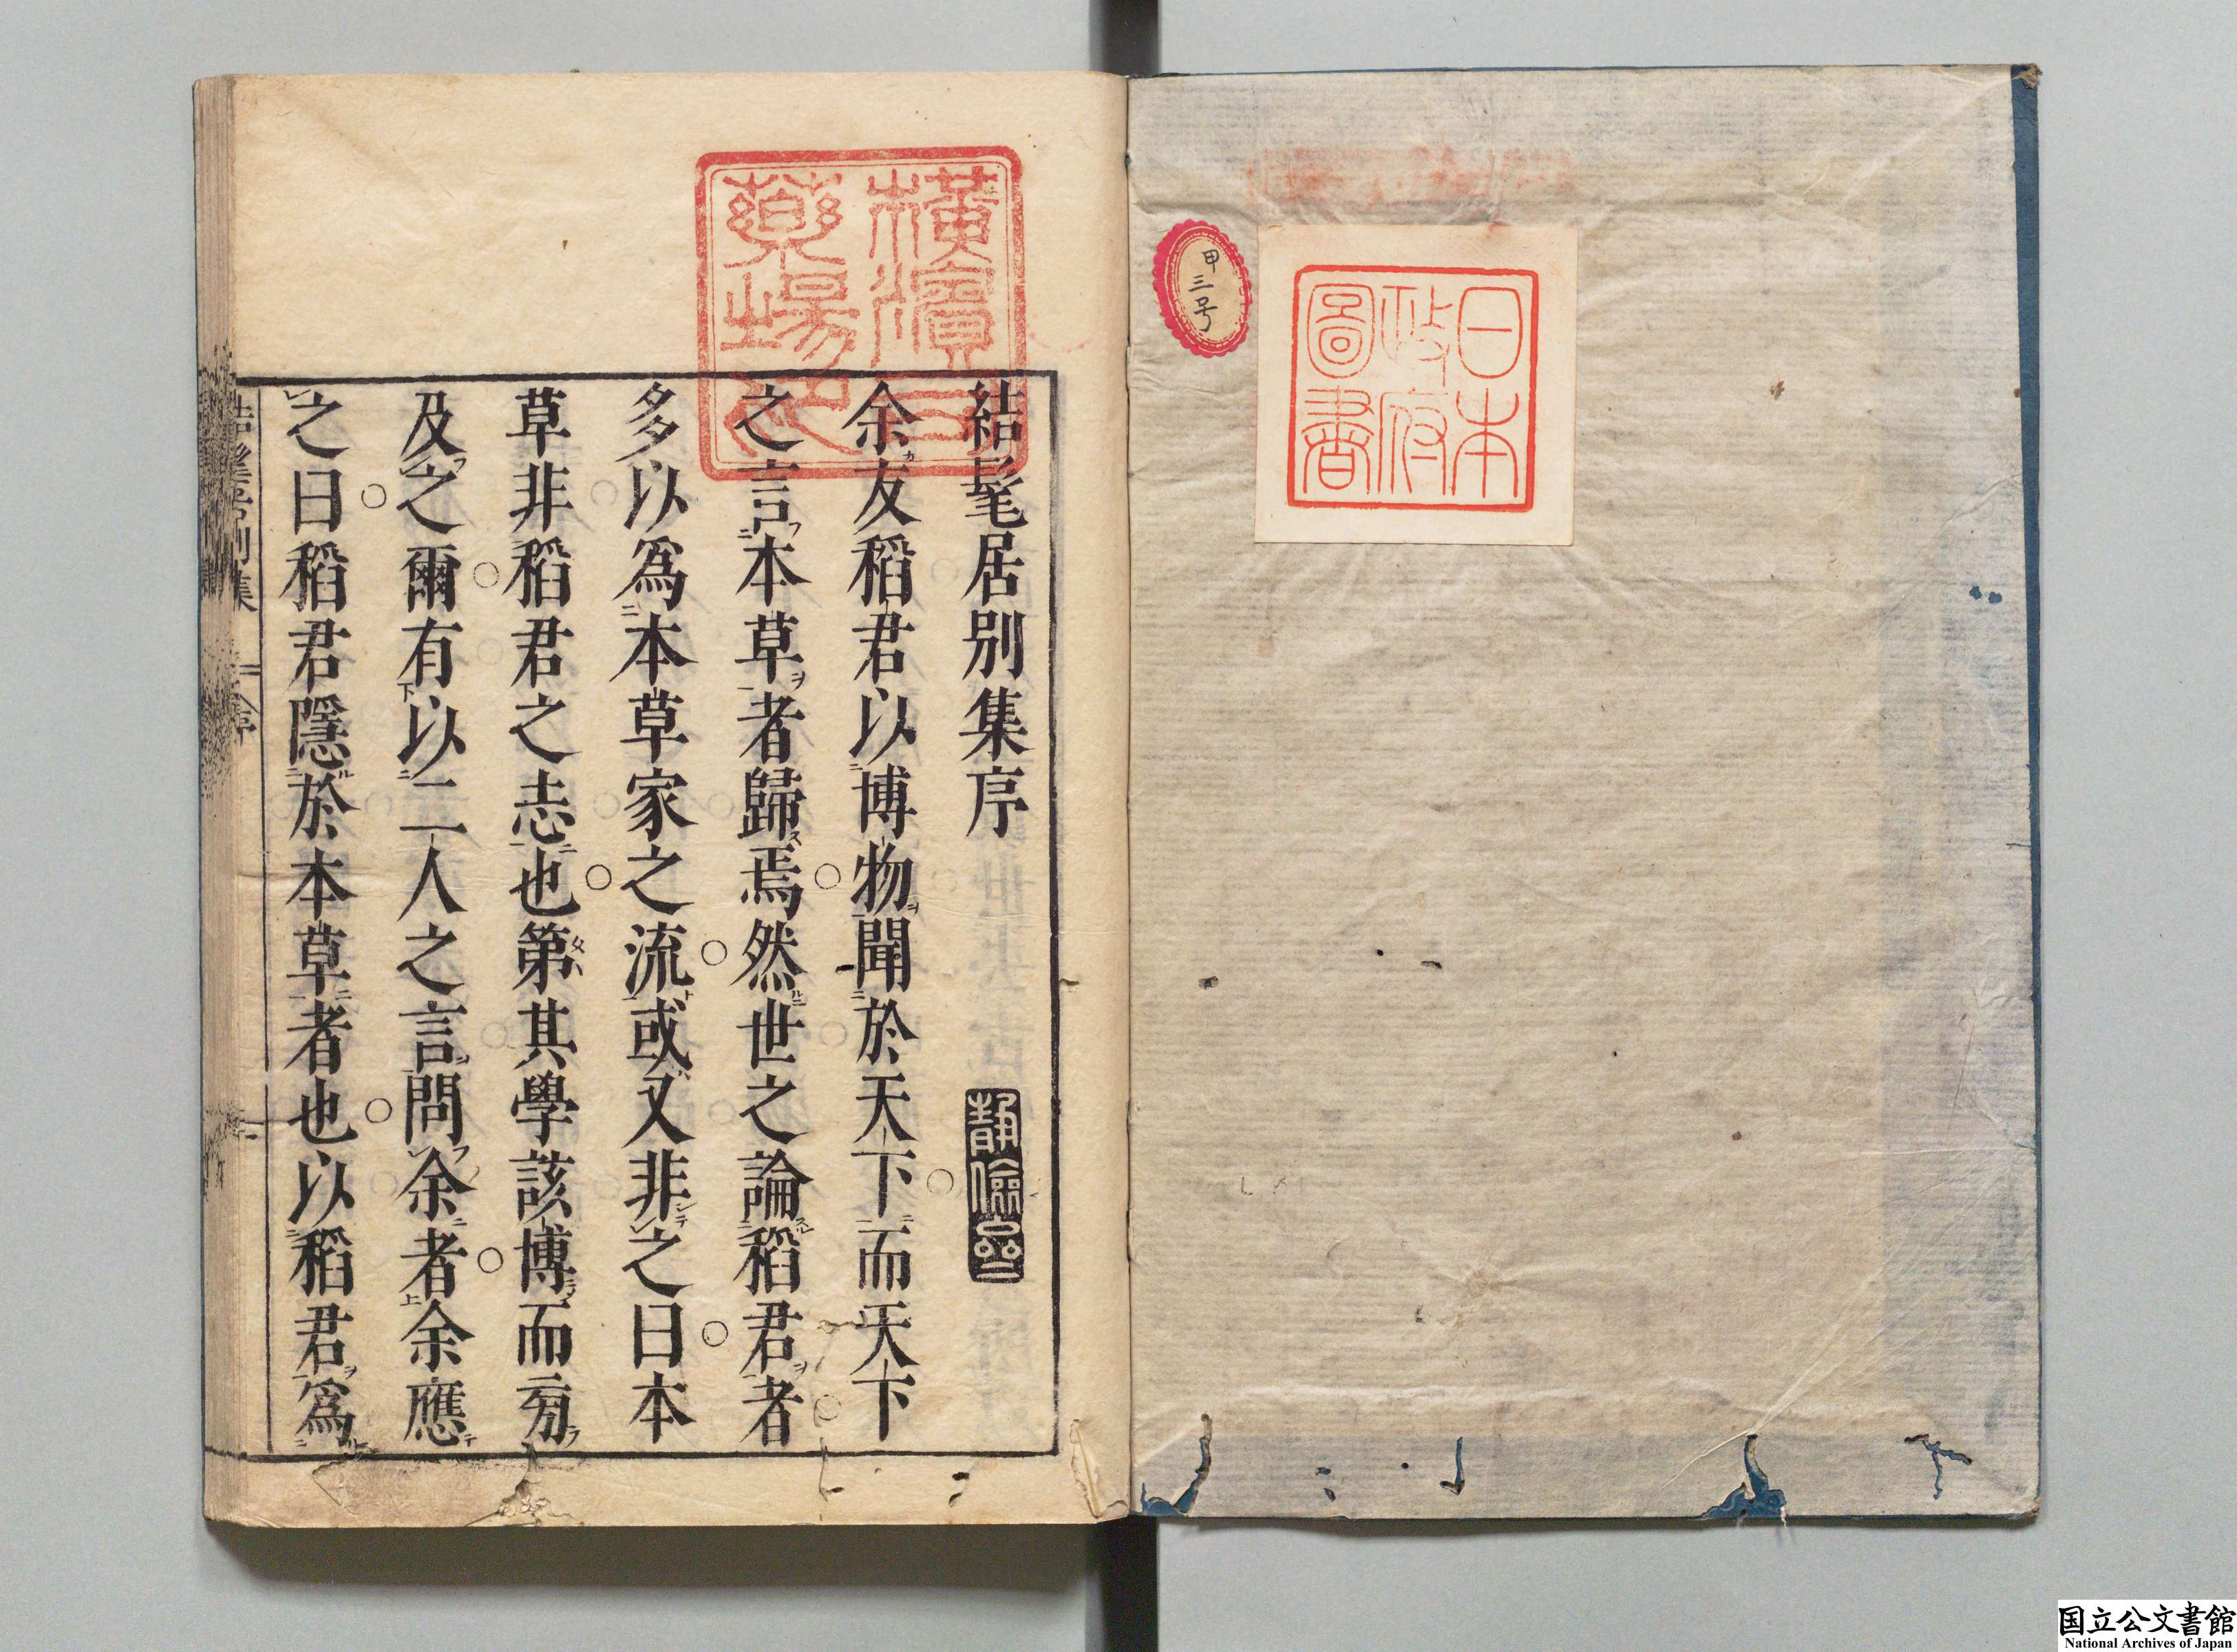 日本
政府
圖書
甲三号
横濱
藥場
結髦居别集序
余友稻君以博物聞於天下而天下
之言本草者歸焉然世之論稻君者
多以爲本草家之流或又非之曰本
草非稻君之志也第其學該博而旁
及之爾有以二人之言問余者余應
之曰稻君隱於本草者也以稻君爲
国立公文書館
National Archives of Japan